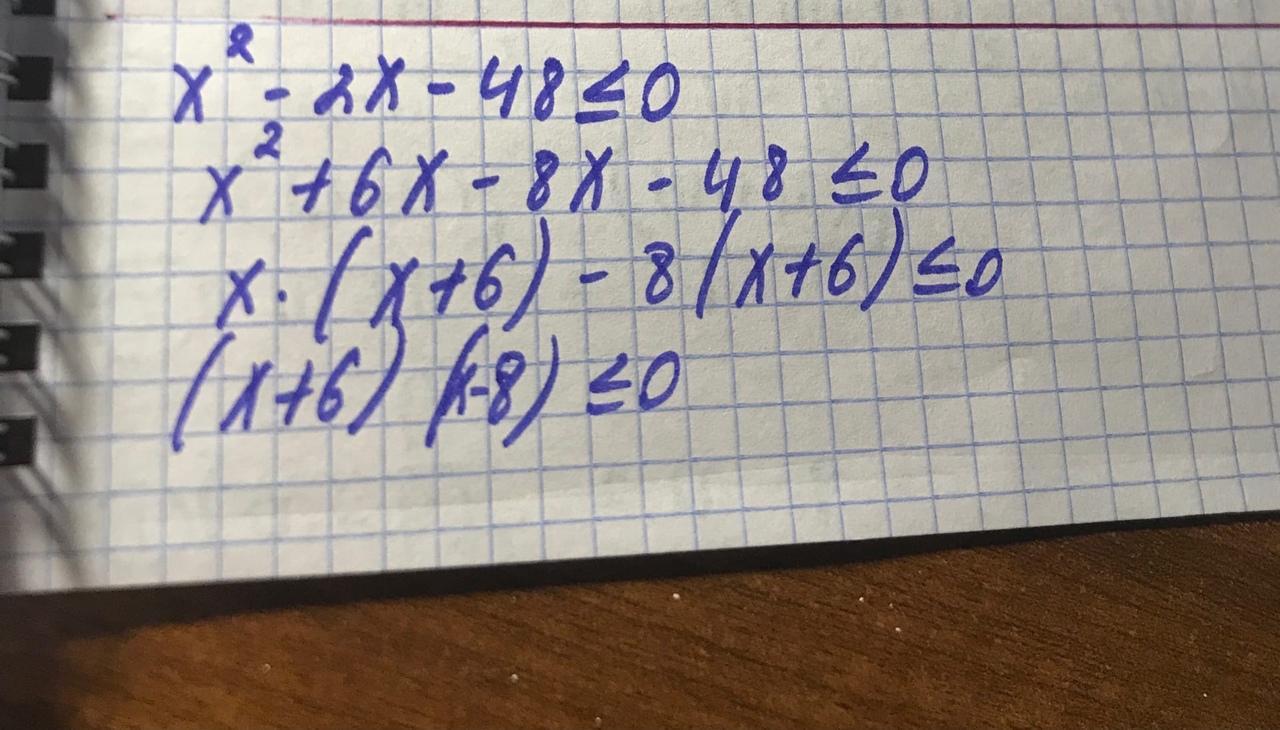 x² - 2x - 48 ≤ 0
x² + 6x - 8x - 48 ≤ 0
x · (x+6) - 8(x+6) ≤ 0
(x+6) (x-8) ≤ 0